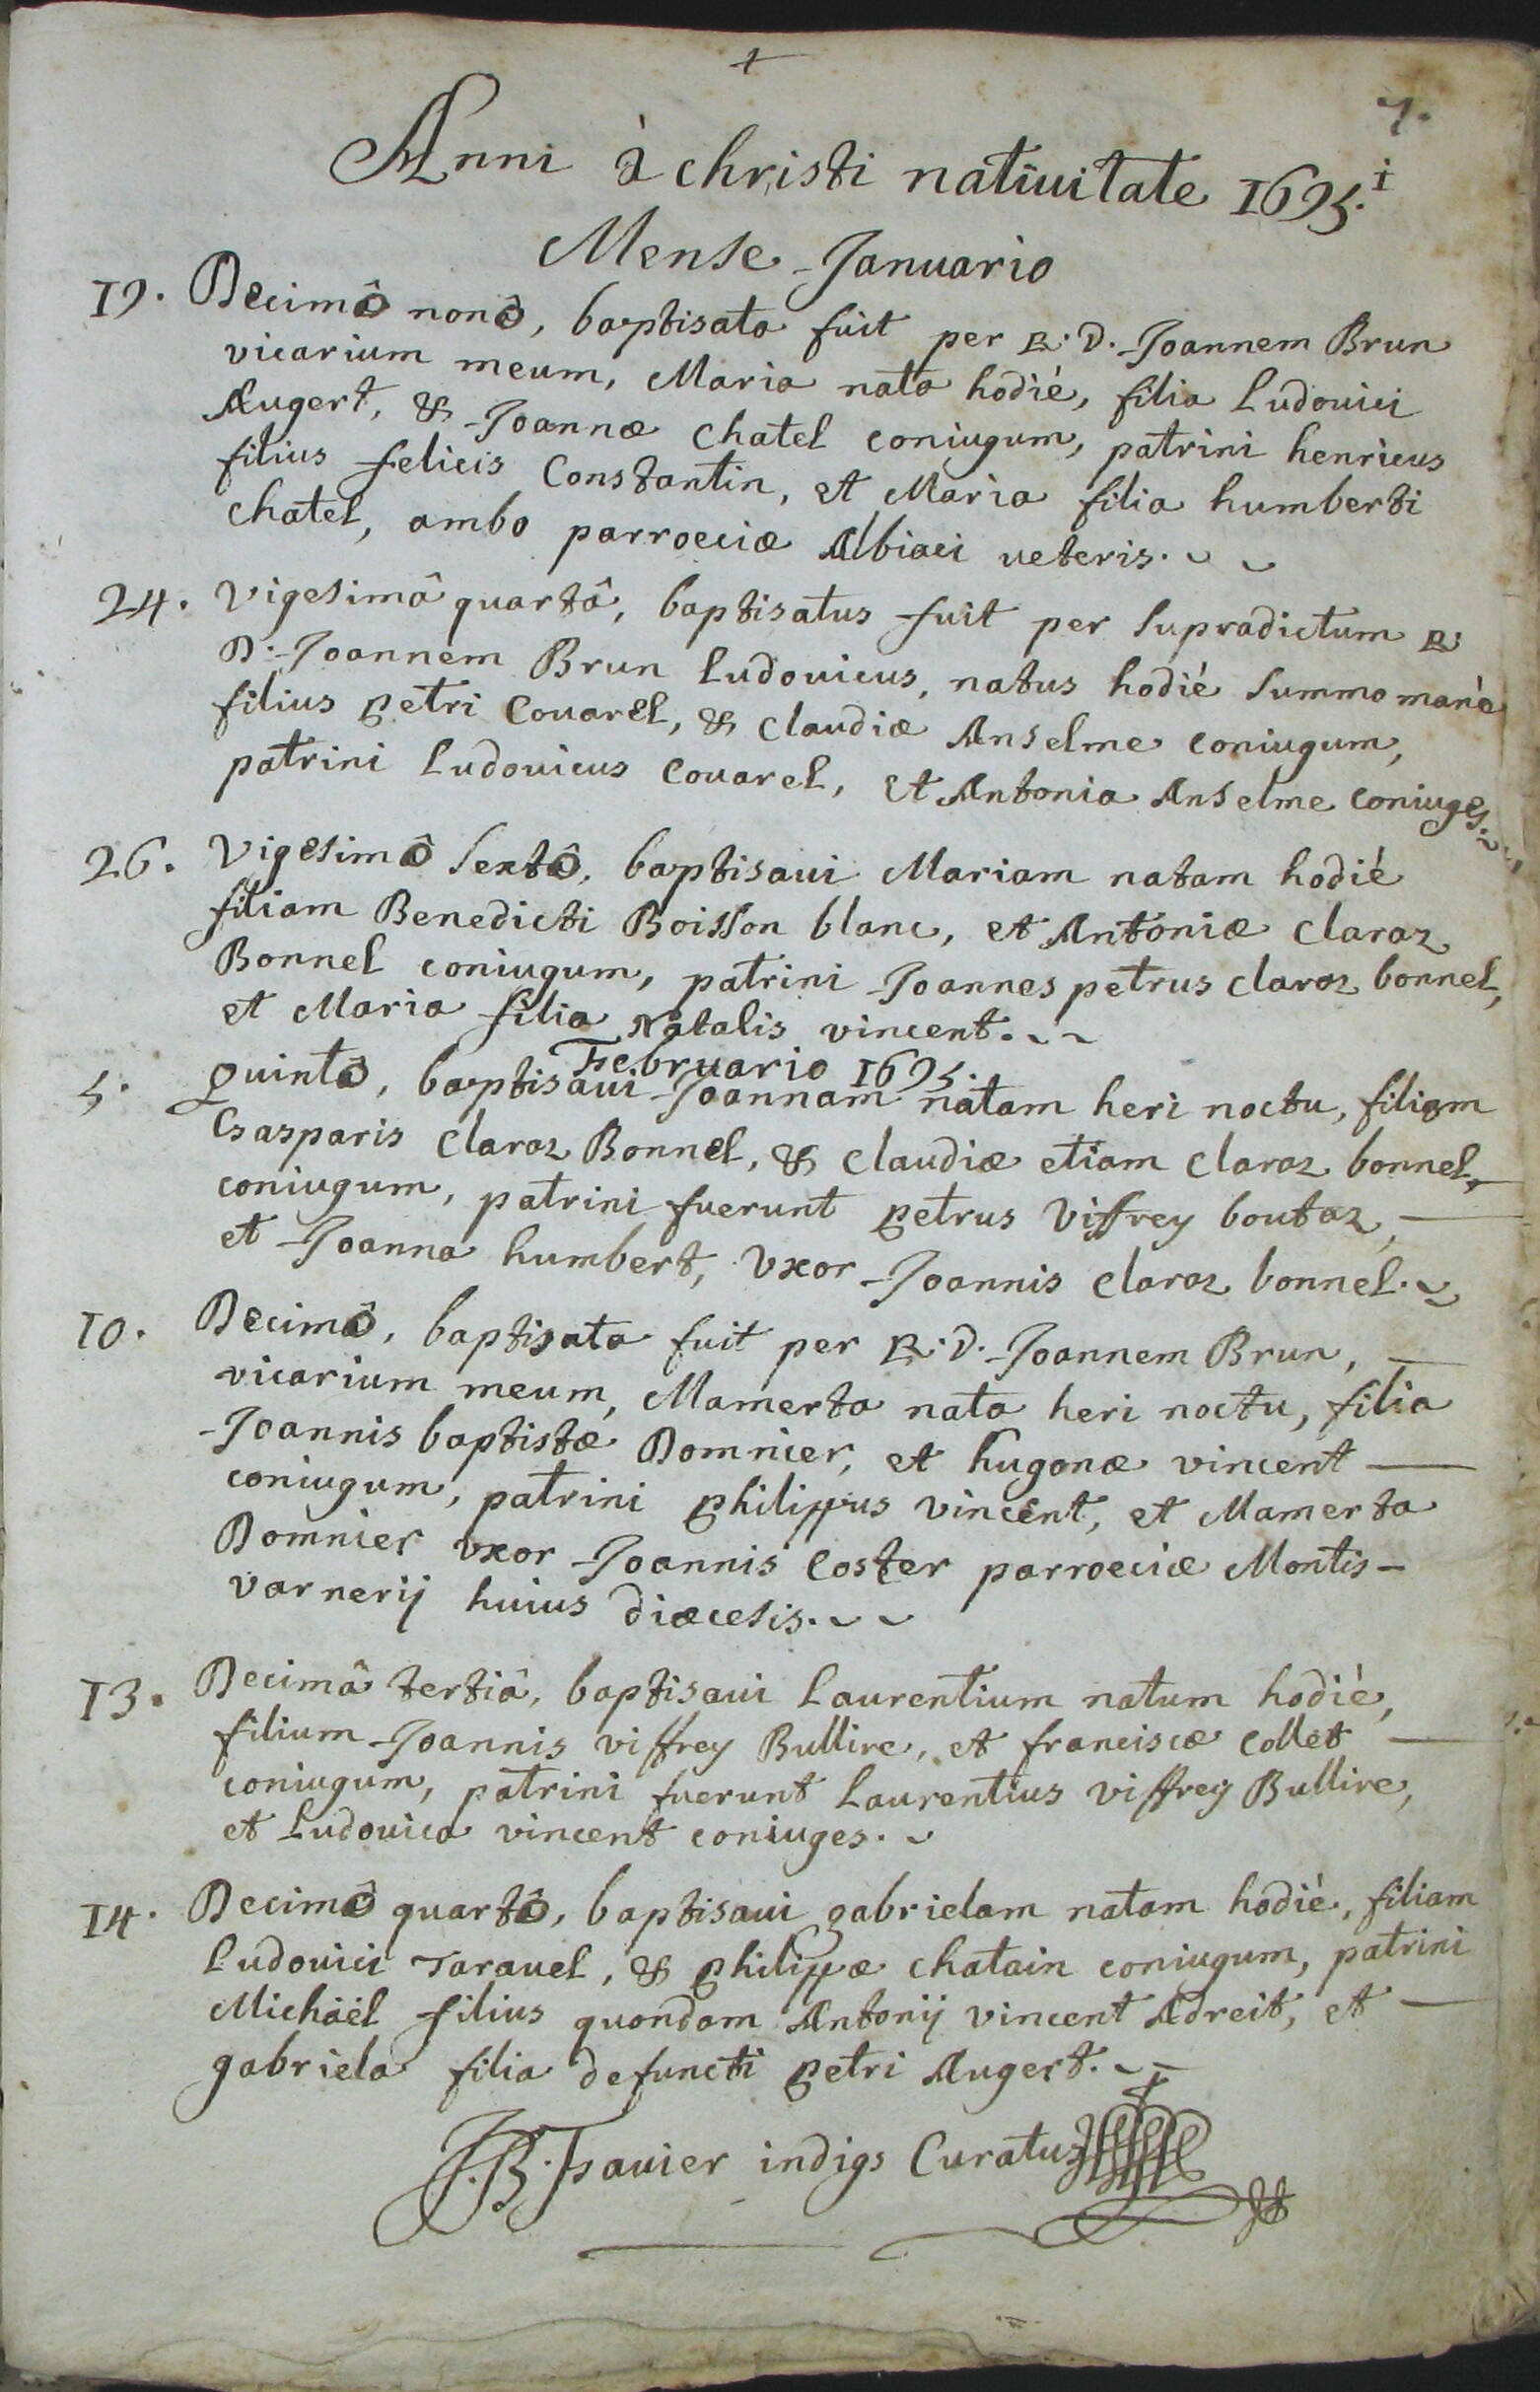 7.
Anni à christi natiuitate 1695. i
Mense Januario
19. Decimô nonô, baptisata fuit per R. D. Joannem Brun
vicarium meum, Maria nata hodié, filia Ludouici
Augert, & Joannæ Chatel coniugum, patrini henricus
filius felicis Constantin, et Maria filia humberti
Chatel, ambo parroeciæ Albiaci ueteris.
24. Vigesimâ quartâ, baptisatus fuit per Supradictum R.
D. Joannem Brun Ludouicus, natus hodié Summo manè
filius petri Couarel, & Claudiæ Anselme coniugum,
patrini Ludouicus Couarel, et Antonia Anselme coniuges.
26. Vigesimô Sextô, baptisaui Mariam natam hodié
filiam Benedicti Boisson blanc, et Antoniæ Claraz
Bonnel coniugum, patrini Joannes petrus claraz bonnel,
et Maria filia Natalis vincent.
Februario 1695.
5. quintô, baptisaui Joannam natam heri noctu, filiam
Gasparis Claraz Bonnel, & Claudiæ etiam Claraz bonnel,
coniugum, patrini fuerunt petrus Viffrey boutaz,
et Joanna humbert, Vxor Joannis claraz bonnel.
10. Decimô, baptisata fuit per R. D. Joannem Brun,
vicarium meum, Mamerta nata heri noctu, filia
Joannis baptistæ Domnier, et hugonæ vincent
coniugum, patrini philippus vincent, et Mamerta
Domnier vxor Joannis Coster parroeciæ Montis-
varnerij huius diæcesis.
13. Decimâ tertiâ, baptisaui Laurentium natum hodié,
filium Joannis viffrey Bullire, et franciscæ Collet
coniugum, patrini fuerunt Laurentius viffrey Bullire,
et Ludouica vincent coniuges.
14. Decimô quartô, baptisaui gabrielam natam hodié, filiam
Ludouici Tarauel, & philippæ chatain coniugum, patrini
Michaël filius quondam Antonij vincent Adreit, et
gabriela filia defuncti petri Augert.
J. B. Tsauier indigs Curatus